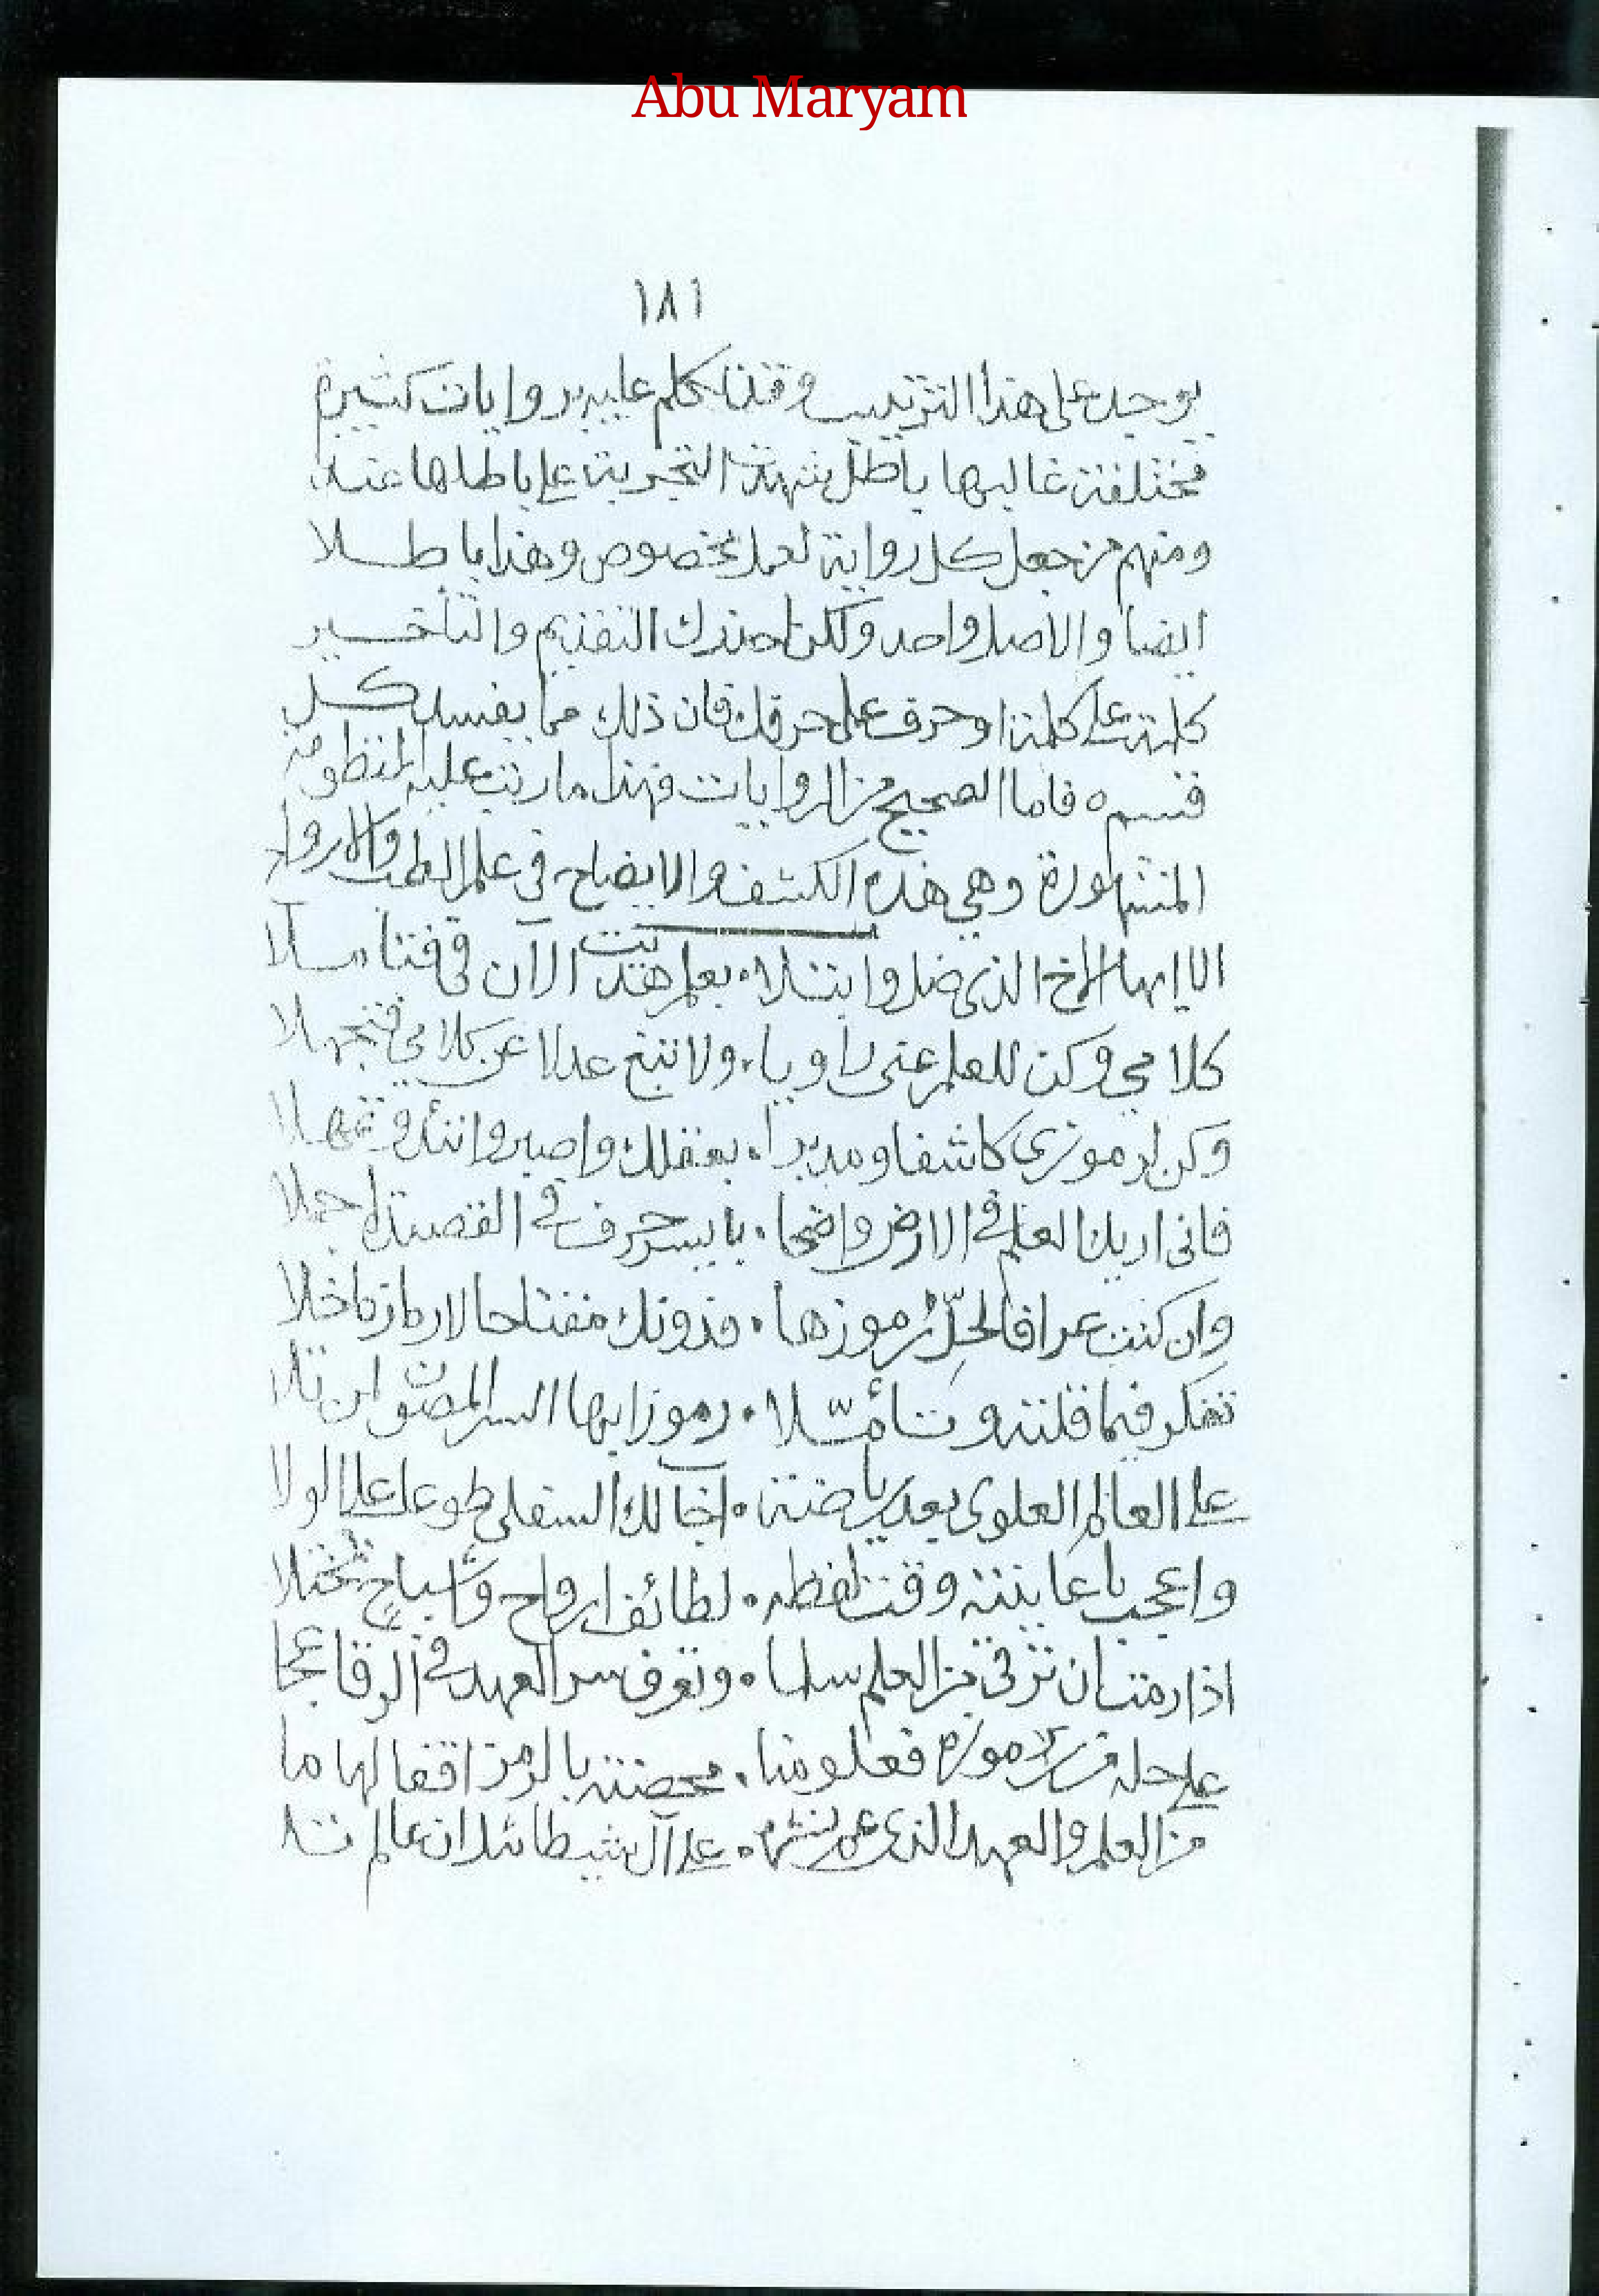 Abu Maryam
١٨١
يوجد على هذا الترتيب وقد تكلم عليه بروايات كثيرة
مختلفة غالبها باطل شهدت التجربة على باطلها عند
ومنهم من جعل كل رواية لعمل مخصوص وهذا باطلا
ايضا والاصل واحد ولكن التقديم والتأخير
كلمة على كلمة او حرف على حرف فان ذلك مما يفسد كل
قسم ه فاما الصحيح من الروايات فهذا ما رتب عليه المنظومة
المشهورة وهي هذه الكشف والايضاح في علم الطب والارواح
الا ايها الاخ الذي ضل وابتلا ٠ بعلم هديت الآن في
كلامي وكن للعلم عني راويا ٠ ولا تبغ عدلا عن كلامي فتجهلا
وكن لرموزي كاشفا ومدبرا ٠ بعقلك واصبر واتئد وتمهلا
فاني اريك العلم في الارض واضحا ٠ بايسر حرف في القصيدة اجملا
وان كنت عرافا لحل رموزها ٠ فدونك مفتاحا
تفكر فيما قلته وتأملا ٠ رموزا بها السر المصون ان تلا
على العالم العلوي بعد رياضة ٠ اجا لك السفلي طوعا على الولا
واعجب ما عاينته وقت لفظه ٠ لطائف ارواح واشباح تختلا
اذا رمت ان ترقى من العلم سلما ٠ وتعرف سر العهد في
على حله من ٠ محصنة بالرمز اقفالها ما
من العلم والعهد الذي ٠ على آل